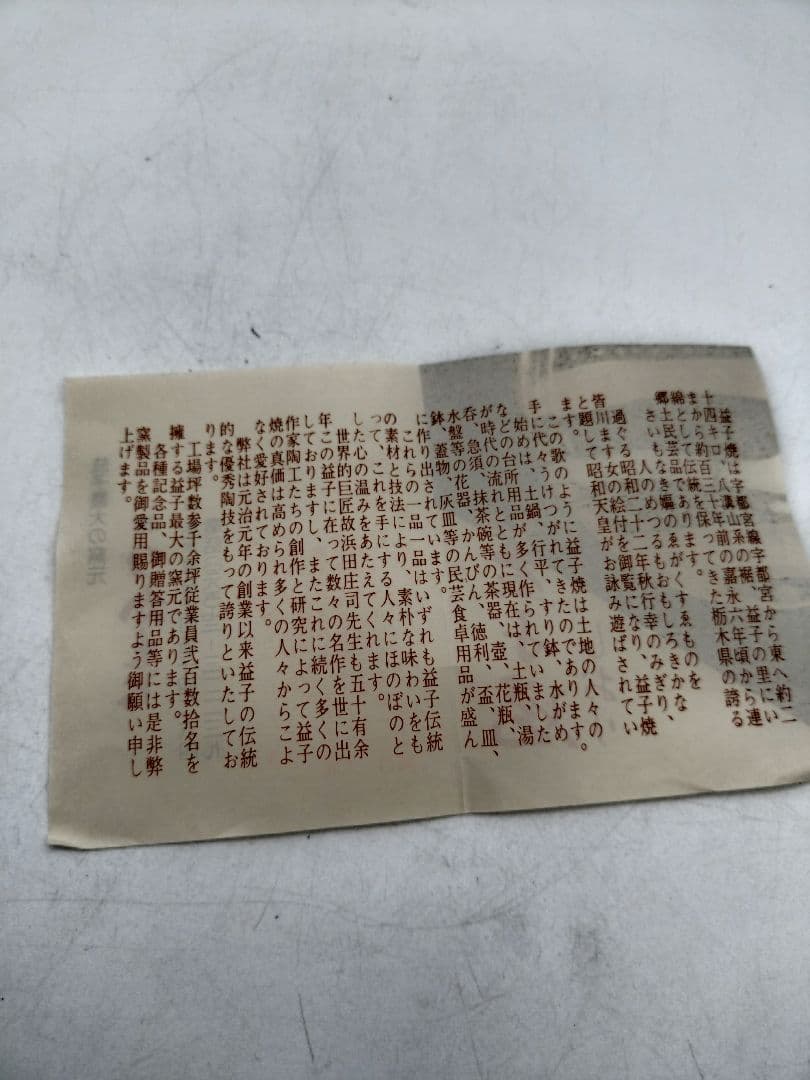 益子焼は宇都宮線宇都宮から東へ約二
十四キロ、八溝山系の裾、益子の里にい
まから約百三十年前の嘉永六年頃から連
綿として伝統を保ってきた栃木県の誇る
郷土民芸品であります。
さいもなき媼のゑがくすゑものを
人のめつるもおもしろきかな
過ぐる昭和二十二年秋行幸のみぎり、
皆川ます女の絵付を御覧になり、益子焼
と題して昭和天皇がお詠み遊ばされてい
ます。
この歌のように益子焼は土地の人々の
手に代々うけつがれてきたのであります。
始めは、土鍋、行平、すり鉢、水がめ
などの台所用品が多く作られていました
が時代の流れとともに現在は、土瓶、湯
呑、急須、抹茶碗等の茶器、壺、花瓶、
水盤等の花器、かんびん、徳利、盃、皿、
鉢、蓋物、灰皿等の民芸食卓用品が盛ん
に作り出されています。
これらの一品一品はいずれも益子伝統
の素材と技法により、素朴な味わいをも
って、これを手にする人々にほのぼのと
した心の温みをあたえてくれます。
世界的巨匠故浜田庄司先生も五十有余
年この益子に在って数々の名作を世に出
しておりますし、またこれに続く多くの
作家陶工たちの創作と研究によって益子
焼の真価は高められ多くの人々からこよ
なく愛好されております。
弊社は元治元年の創業以来益子の伝統
的な優秀陶技をもって誇りといたしてお
ります。
工場坪数参千余坪従業員弐百数拾名を
擁する益子最大の窯元であります。
各種記念品、御贈答用品等には是非弊
窯製品を御愛用賜りますよう御願い申し
上げます。